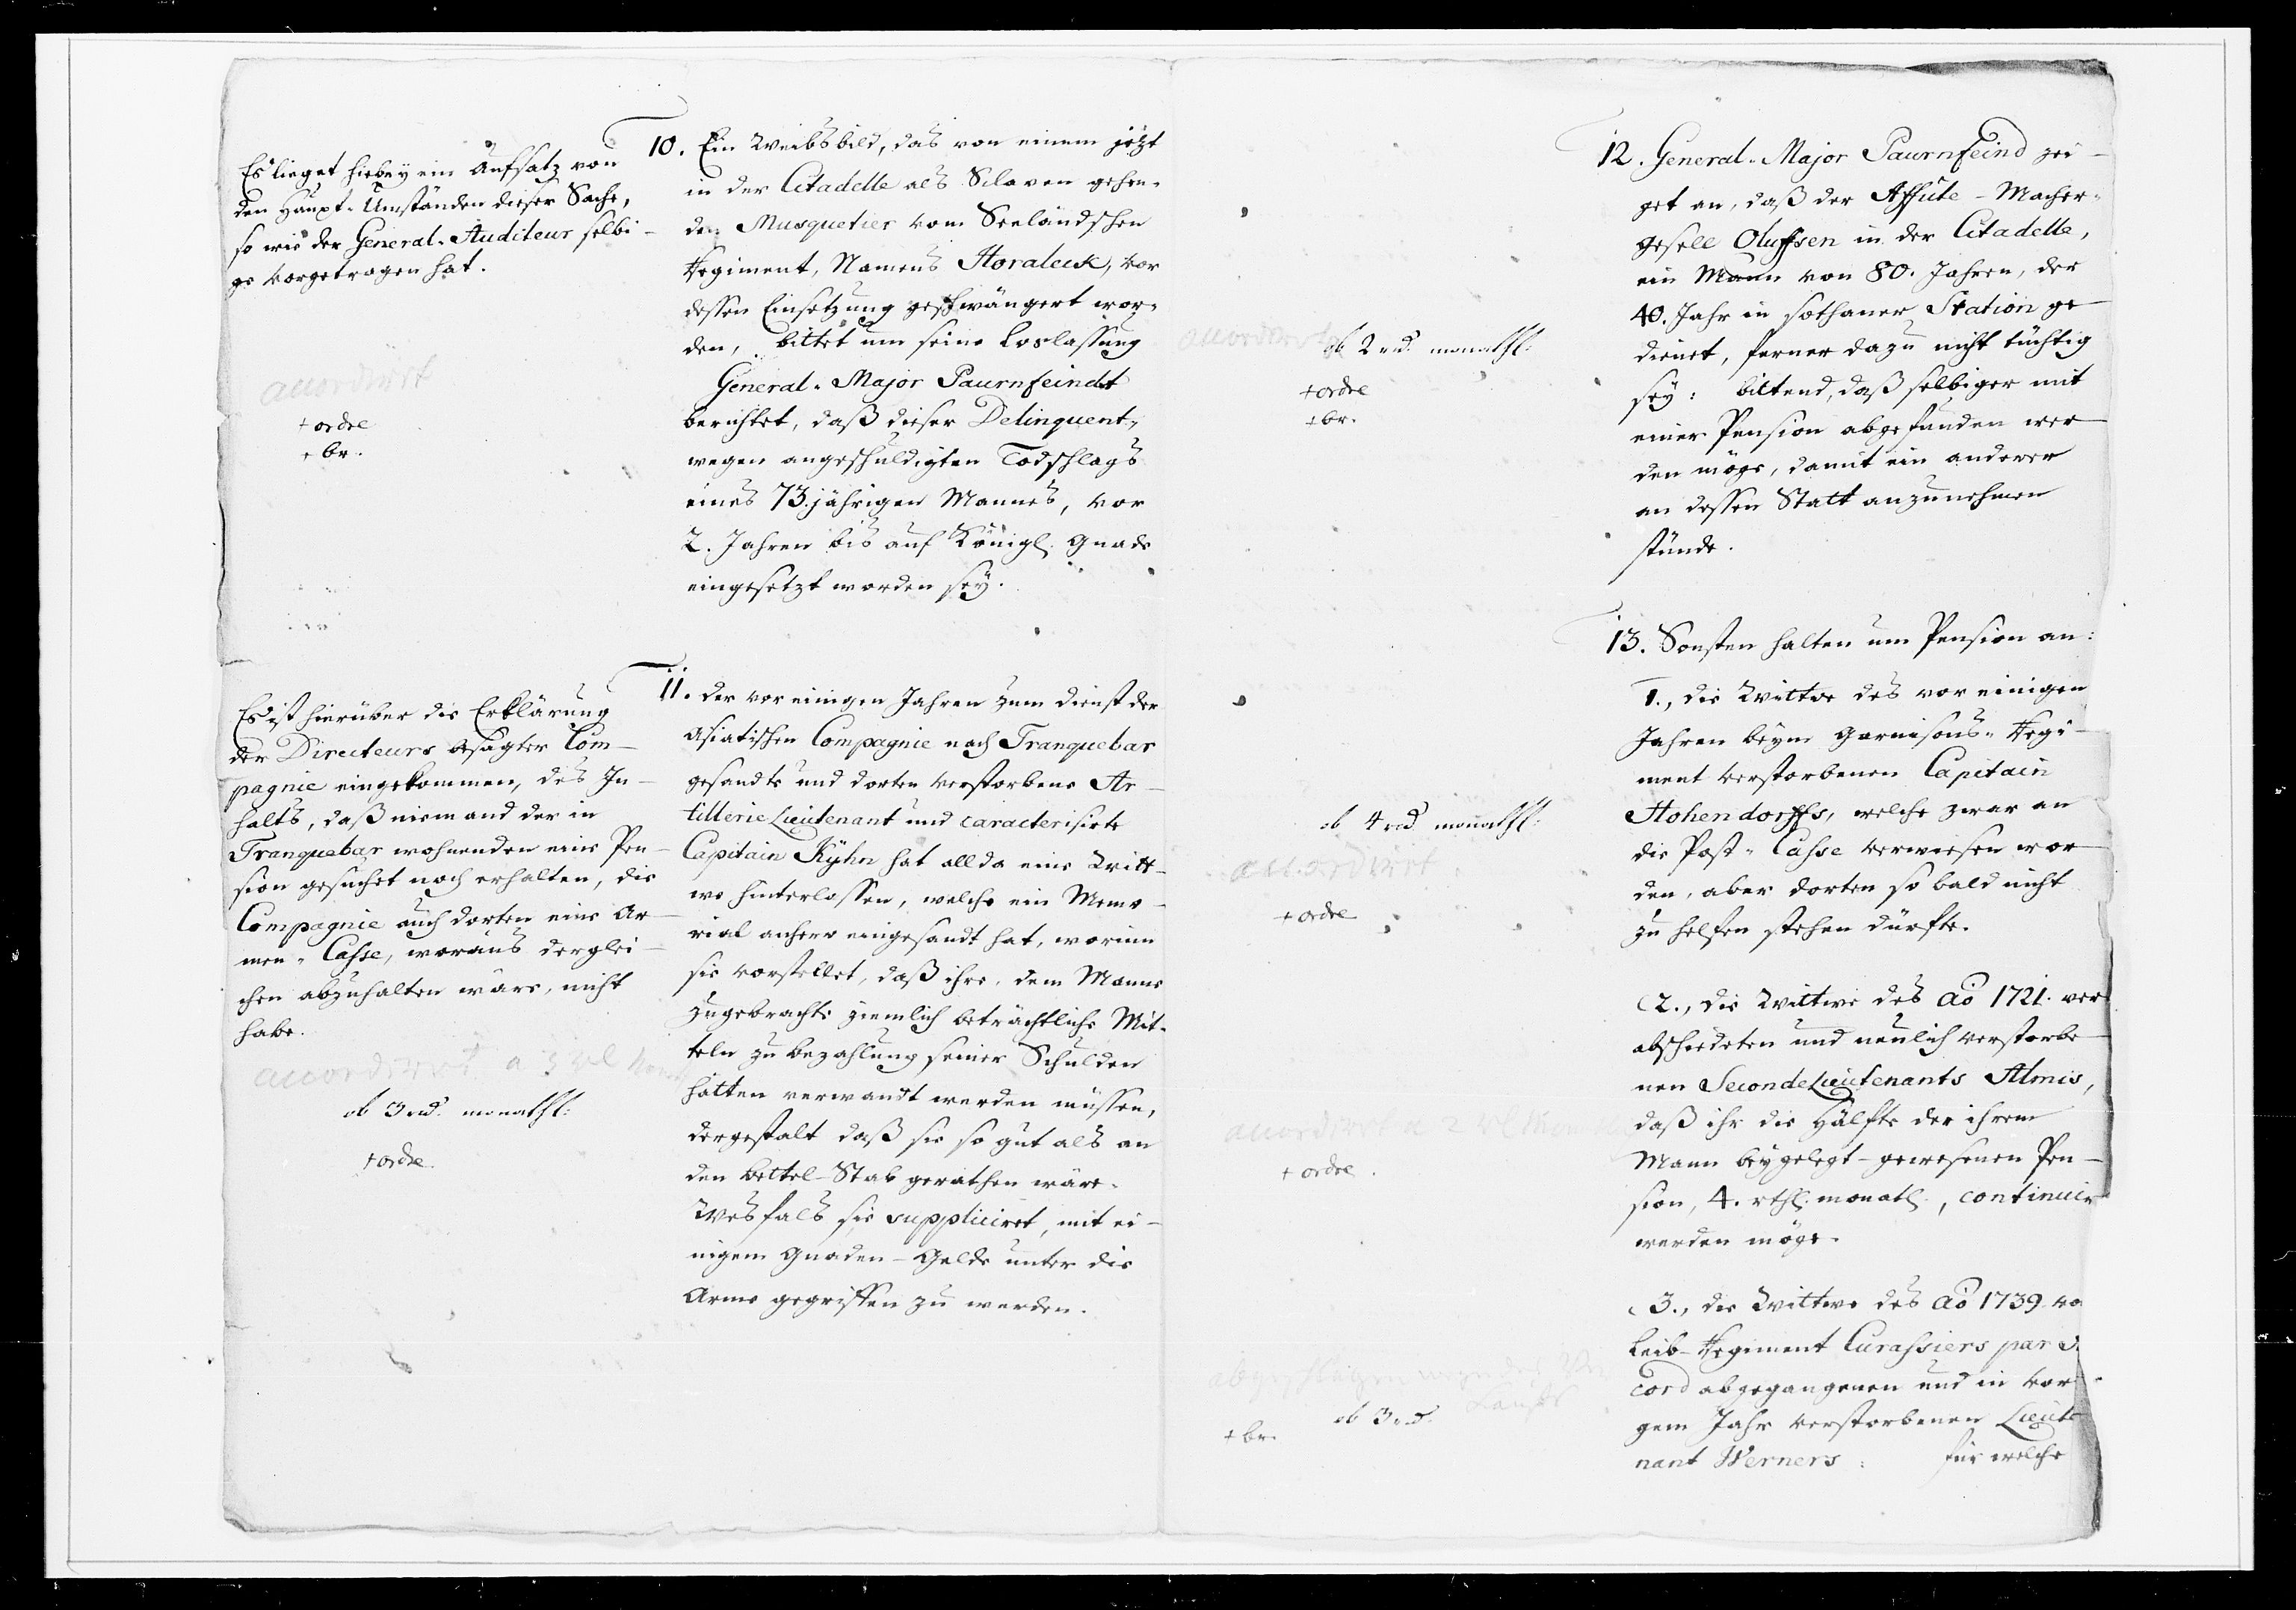 Es lieget hiebey ein Aufsatz von
den Haupt-Umständen dieser Sache,
so wie der General-Auditeur selbi-
ge vorgetragen hat.
accordiret
+ ordre
+ br.
10. Ein Weibsbild, das von einem jetzt
in der Citadelle als Sclaven gehen-
den Musquetier vom Seeländschen
Regiment, Namens Horaleck, vor
dessen Einsetzung geschwängert wor-
den, bittet um seine Loslassung
General-Major Paurnfeindt
berichtet, daß dieser Delinquent,
wegen angeschuldigten Todschlags
eines 73.jährigen Mannes, vor
2. Jahren bis auf Königl. Gnade
eingesetzt worden sey.
Es ist hierüber die Erklärung
der Directeurs besagter Com-
pagnie eingekommen, des In-
halts, daß niemand der in
Tranquebar wohnenden eine Pen-
sion gesuchet noch erhalten, die
Compagnie auch dorten eine Ar-
men-Casse, woraus derglei-
chen abzuhalten wäre, nicht
habe.
accordiret a 3 rd
ob 3 rd. monathl:
+ ordre.
11. Der vor einigen Jahren zum Dienst der
Asiatischen Compagnie nach Tranquebar
gesandte und dorten verstorbene Ar-
tillerie Lieutenant und caracterisirte
Capitain Kyhn hat allda eine Witt-
we hinterlassen, welche ein Memo-
rial anhero eingesandt hat, worinn
sie vorstellet, daß ihre, dem Manne
zugebrachte ziemlich beträchtliche Mit-
teln zu bezahlung seiner Schulden
hätten verwandt werden müssen,
dergestalt daß sie so gut als an
den Bettel-Stab gerathen wäre.
Wesfals sie suppliciret, mit ei-
nigem Gnaden-Gelde unter die
Arme gegriffen zu werden.
accordiret
ob 2 rd. monathl:
+ ordre
+ br.
12. General-Major Paurnfeind zei-
get an, daß der Affute-Macher-
gesell Oluffsen in der Citadelle,
ein Mann von 80. Jahren, der
40. Jahr in sothaner Station ge-
dienet, ferner dazu nicht tüchtig
sey: bittend, daß selbiger mit
einer Pension abgefunden wer-
den möge, damit ein anderer
an dessen Statt anzunehmen
stünde.
13. Sonsten halten um Pension an:
ob 4 rd. monathl:
accordiret
+ ordre
1., die Wittwe des vor einigen
Jahren beym Garnisons-Regi-
ment verstorbenen Capitain
Hohendorffs, welche zwar an
die Post-Casse verwiesen wor-
den, aber dorten so bald nicht
zu helfen stehen dürfte.
accordiret a 2 rd
+ ordre.
2., die Wittwe des Ao 1721. ver-
abschiedeten und neulich verstorbe-
nen Seconde Lieutenants Almis,
daß ihr die Hälfte der ihrem
Mann beygelegt-gewesenen Pen-
sion, 4. rthl. monatl., continuir
werden möge.
abgeschlagen wegen der
ob 3 rd.
+ br.
3., die Wittwe des Ao 1739 vo
Leib-Regiment Curassiers par
cord abgegangenen und in vor-
gem Jahr verstorbenen Lieute-
nant Werners: für welche